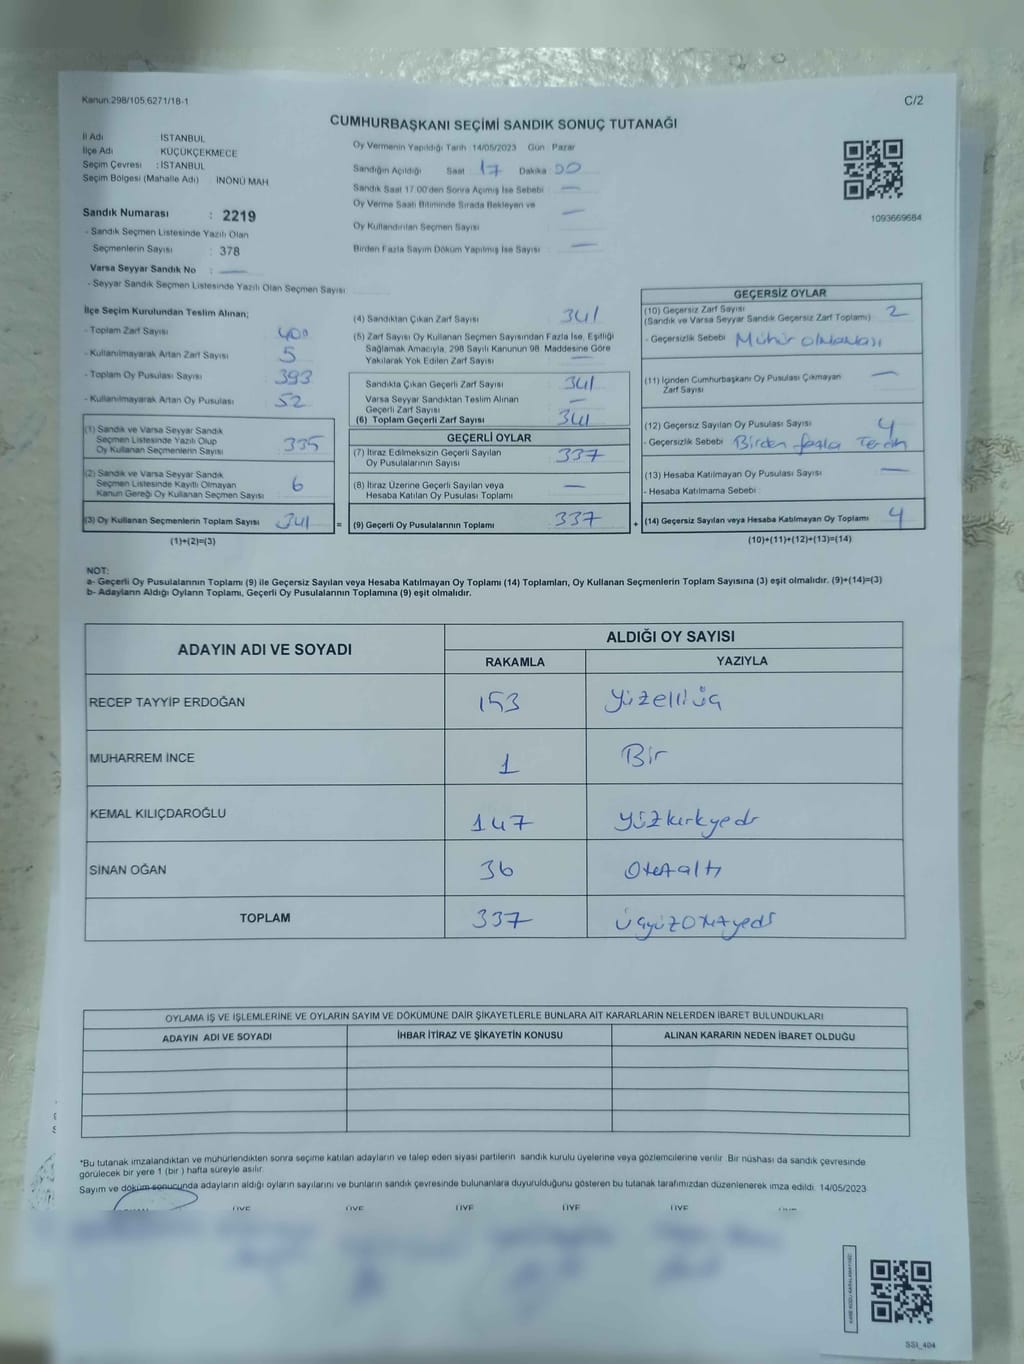 Kanun:298/105,6271/18-1
C/2
CUMHURBAŞKANI SEÇİMİ SANDIK SONUÇ TUTANAĞI
İl Adı İSTANBUL
İlçe Adı KÜÇÜKÇEKMECE
Seçim Çevresi : İSTANBUL
Seçim Bölgesi (Mahalle Adı) : İNÖNÜ MAH
Sandık Numarası : 2219
- Sandık Seçmen Listesinde Yazılı Olan
Seçmenlerin Sayısı : 378
Varsa Seyyar Sandık No : —
- Seyyar Sandık Seçmen Listesinde Yazılı Olan Seçmen Sayısı:
Oy Vermenin Yapıldığı Tarih :14/05/2023 Gün : Pazar
Sandığın Açıldığı Saat 17 Dakika 00
Sandık Saat 17.00'den Sonra Açılmış İse Sebebi : —
Oy Verme Saati Bitiminde Sırada Bekleyen ve —
Oy Kullandırılan Seçmen Sayısı
Birden Fazla Sayım Döküm Yapılmış İse Sayısı : —
1093669684
İlçe Seçim Kurulundan Teslim Alınan;
- Toplam Zarf Sayısı : 400
- Kullanılmayarak Artan Zarf Sayısı : 5
- Toplam Oy Pusulası Sayısı : 393
- Kullanılmayarak Artan Oy Pusulası : 52
(1) Sandık ve Varsa Seyyar Sandık
Seçmen Listesinde Yazılı Olup
Oy Kullanan Seçmenlerin Sayısı 335
(2) Sandık ve Varsa Seyyar Sandık
Seçmen Listesinde Kayıtlı Olmayan
Kanun Gereği Oy Kullanan Seçmen Sayısı 6
(3) Oy Kullanan Seçmenlerin Toplam Sayısı 341
(1)+(2)=(3)
(4) Sandıktan Çıkan Zarf Sayısı : 341
(5) Zarf Sayısı Oy Kullanan Seçmen Sayısından Fazla İse, Eşitliği
Sağlamak Amacıyla, 298 Sayılı Kanunun 98. Maddesine Göre
Yakılarak Yok Edilen Zarf Sayısı : —
Sandıkta Çıkan Geçerli Zarf Sayısı : 341
Varsa Seyyar Sandıktan Teslim Alınan
Geçerli Zarf Sayısı : —
(6) Toplam Geçerli Zarf Sayısı : 341
GEÇERLİ OYLAR
(7) İtiraz Edilmeksizin Geçerli Sayılan
Oy Pusulalarının Sayısı : 337
(8) İtiraz Üzerine Geçerli Sayılan veya
Hesaba Katılan Oy Pusulası Toplamı : —
= (9) Geçerli Oy Pusulalarının Toplamı : 337
GEÇERSİZ OYLAR
(10) Geçersiz Zarf Sayısı
(Sandık ve Varsa Seyyar Sandık Geçersiz Zarf Toplamı) : 2
- Geçersizlik Sebebi : Mühür olmaması
(11) İçinden Cumhurbaşkanı Oy Pusulası Çıkmayan : —
Zarf Sayısı
(12) Geçersiz Sayılan Oy Pusulası Sayısı : 4
- Geçersizlik Sebebi : Birden fazla Tercih
(13) Hesaba Katılmayan Oy Pusulası Sayısı : —
- Hesaba Katılmama Sebebi :
+ (14) Geçersiz Sayılan veya Hesaba Katılmayan Oy Toplamı : 4
(10)+(11)+(12)+(13)=(14)
NOT:
a- Geçerli Oy Pusulalarının Toplamı (9) ile Geçersiz Sayılan veya Hesaba Katılmayan Oy Toplamı (14) Toplamları, Oy Kullanan Seçmenlerin Toplam Sayısına (3) eşit olmalıdır. (9)+(14)=(3)
b- Adayların Aldığı Oyların Toplamı, Geçerli Oy Pusulalarının Toplamına (9) eşit olmalıdır.
ADAYIN ADI VE SOYADI
ALDIĞI OY SAYISI
RAKAMLA YAZIYLA
RECEP TAYYİP ERDOĞAN 153 Yüzelliüç
MUHARREM İNCE 1 Bir
KEMAL KILIÇDAROĞLU 147 yüzkırkyedi
SİNAN OĞAN 36 Otuzaltı
TOPLAM 337 üçyüzotuzyedi
OYLAMA İŞ VE İŞLEMLERİNE VE OYLARIN SAYIM VE DÖKÜMÜNE DAİR ŞİKAYETLERLE BUNLARA AİT KARARLARIN NELERDEN İBARET BULUNDUKLARI
ADAYIN ADI VE SOYADI İHBAR İTİRAZ VE ŞİKAYETİN KONUSU ALINAN KARARIN NEDEN İBARET OLDUĞU
*Bu tutanak imzalandıktan ve mühürlendikten sonra seçime katılan adayların ve talep eden siyasi partilerin sandık kurulu üyelerine veya gözlemcilerine verilir. Bir nüshası da sandık çevresinde
görülecek bir yere 1 (bir ) hafta süreyle asılır.
Sayım ve döküm sonucunda adayların aldığı oyların sayılarını ve bunların sandık çevresinde bulunanlara duyurulduğunu gösteren bu tutanak tarafımızdan düzenlenerek imza edildi. 14/05/2023
ÜYE ÜYE ÜYE ÜYE ÜYE
SSİ_404